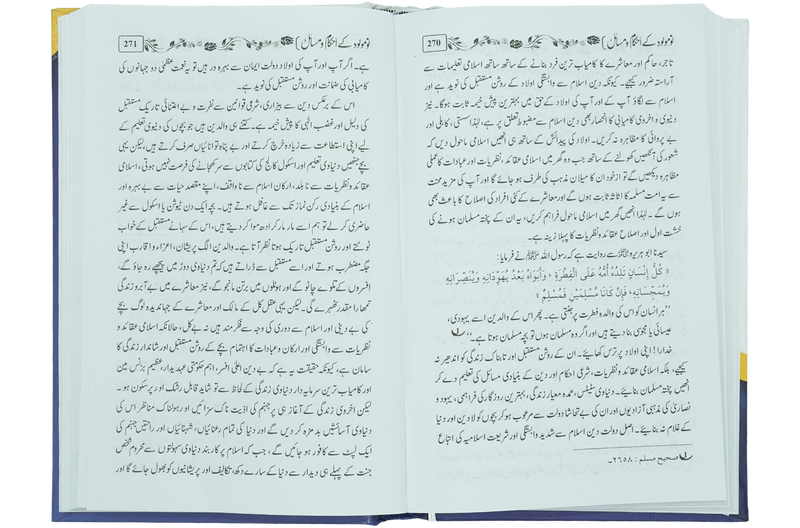 نومولود کے احکام و مسائل
270
تاجر، حاکم اور معاشرے کا کامیاب ترین فرد بنانے کے ساتھ ساتھ اسلامی تعلیمات سے
آراستہ ضرور کیجیے۔ کیونکہ دین اسلام سے وابستگی اولاد کے روشن مستقبل کی نوید ہے اور
اسلام سے لگاؤ آپ کے اور آپ کی اولاد کے حق میں بہترین پیش خیمہ ثابت ہوگا۔ نیز
دنیوی و اخروی کامیابی کا انحصار بھی دین اسلام سے مضبوط تعلق پر ہے، لہٰذا سستی، کاہلی اور
بے پروائی کا مظاہرہ نہ کریں۔ اولاد کی پیدائش کے ساتھ ہی انھیں اسلامی ماحول دیں کہ
شعور کی آنکھیں کھولنے کے ساتھ جب وہ گھر میں اسلامی عقائد، نظریات اور عبادات کا عملی
مظاہرہ دیکھیں گے تو از خود ان کا میلان مذہب کی طرف ہو جائے گا اور آپ کی مزید محنت
سے یہ امت مسلمہ کا اثاثہ ثابت ہوں گے اور معاشرے کے کئی افراد کی اصلاح کا باعث بھی
ہوں گے۔ لہٰذا انھیں گھر میں اسلامی ماحول فراہم کریں، یہ ان کے پختہ مسلمان ہونے کی
خشت اول اور اصلاح عقائد و نظریات کا پہلا زینہ ہے۔
سیدنا ابو ہریرہ ؓ سے روایت ہے کہ رسول اللہ ﷺ نے فرمایا:
« كُلُّ إِنْسَانٍ تَلِدُهُ أُمُّهُ عَلَى الْفِطْرَةِ، وَأَبَوَاهُ بَعْدُ يُهَوِّدَانِهِ وَيُنَصِّرَانِهِ
وَيُمَجِّسَانِهِ، فَإِنْ كَانَا مُسْلِمَيْنِ فَمُسْلِمٌ »
”ہر انسان کو اس کی والدہ فطرت پر جنتی ہے۔ پھر اس کے والدین اسے یہودی،
عیسائی یا مجوسی بنا دیتے ہیں اور اگر وہ مسلمان ہوں تو بچہ مسلمان ہوتا ہے۔“ ①
خدارا! اپنی اولاد پر ترس کھائیے۔ ان کے روشن مستقبل اور تابناک زندگی کو اندھیر نہ
کیجیے، بلکہ اسلامی عقائد و نظریات، شرعی احکام اور دین کے بنیادی مسائل کی تعلیم دے کر
انھیں پختہ مسلمان بنائیے۔ دنیاوی سٹیٹس، عمدہ معیار زندگی، بہترین روزگار کی فراہمی، یہود و
نصاریٰ کی مذہبی آزادیوں اور ان کی بے تحاشا دولت سے مرعوب ہو کر بچوں کو لادین اور دنیا
کے غلام نہ بنائیے۔ اصل دولت دین اسلام سے شدید وابستگی اور شریعت اسلامیہ کی اتباع
① صحیح مسلم : ٢٦٥٨۔
نومولود کے احکام و مسائل
271
ہے۔ اگر آپ اور آپ کی اولاد دولت ایمان سے بہرہ ور ہیں تو یہ نعمت عظمی دو جہانوں کی
کامیابی کی ضمانت اور روشن مستقبل کی نوید ہے۔
اس کے برعکس دین سے بیزاری، شرعی قوانین سے نفرت و بے اعتنائی تاریک مستقبل
کی دلیل اور غضب الٰہی کا پیش خیمہ ہے۔ کتنے ہی والدین ہیں جو بچوں کی دنیوی تعلیم کے
لیے اپنی استطاعت سے زیادہ خرچ کرتے اور بے پناہ توانائیاں صرف کرتے ہیں، لیکن یہی
بچے جنھیں دنیاوی تعلیم اور اسکول کالج کی کتابوں سے سر کھجانے کی فرصت نہیں ہوتی، اسلامی
عقائد و نظریات سے نابلد، ارکان اسلام سے ناواقف، اپنے مقصد حیات سے بے بہرہ اور
اسلام کے بنیادی رکن نماز تک سے غافل ہوتے ہیں۔ بچہ ایک دن ٹیوشن یا اسکول سے غیر
حاضری کر لے تو ہم اسے مار مار کر ادھ موا کر دیتے ہیں، اس کے سہانے مستقبل کے خواب
ٹوٹتے اور روشن مستقبل تاریک ہوتا نظر آتا ہے۔ والدین الگ پریشان، اعزاء و اقارب اپنی
جگہ مضطرب ہوتے اور اسے مستقبل سے ڈراتے ہیں کہ تم دنیاوی دوڑ میں پیچھے رہ جاؤ گے،
افسروں کے تلوے چاٹو گے اور ہوٹلوں میں برتن مانجو گے، نیز معاشرے میں بے آبرو زندگی
تمھارا مقدر ٹھہرے گی۔ لیکن یہی عقل کل کے مالک اور معاشرے کے جہاندیدہ لوگ بچے
کی بے دینی اور اسلام سے دوری کی وجہ سے فکر مند ہیں نہ بے کل، حالانکہ اسلامی عقائد و
نظریات سے وابستگی اور ارکان و عبادات کا اہتمام بچے کے روشن مستقبل اور شاندار زندگی کا
سامان ہے، کیونکہ حقیقت یہ ہے کہ بے دین اعلیٰ افسر، اہم حکومتی عہدیدار، عظیم بزنس مین
اور کامیاب ترین سرمایہ دار دنیاوی زندگی کے لحاظ سے تو شاید قابل رشک اور پرسکون ہو۔
لیکن اخروی زندگی کے آغاز ہی پر جہنم کی اذیت ناک سزائیں اور ہولناک مناظر اس کی
دنیاوی آسائشیں بدمزہ کر دیں گے اور دنیا کی تمام رعنائیاں، شہنائیاں اور راحتیں جہنم کی
ایک لپٹ سے کافور ہو جائیں گے، جب کہ اسلام پر کاربند دنیاوی سہولتوں سے محروم شخص
جنت کے پہلے ہی دیدار سے دنیا کے سارے دکھ، تکالیف اور پریشانیوں کو بھول جائے گا اور